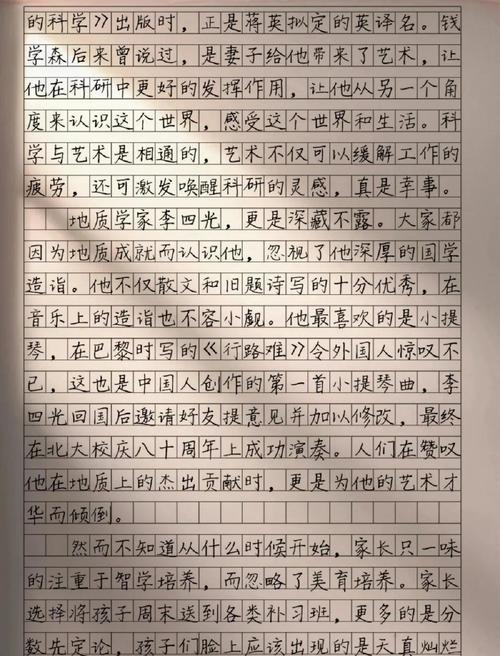 的科学》出版时，正是蒋英拟定的英译名。钱
学森后来曾说过，是妻子给他带来了艺术，让
他在科研中更好的发挥作用，让他从另一个角
度来认识这个世界，感受这个世界和生活。科
学与艺术是相通的，艺术不仅可以缓解工作的
疲劳，还可激发唤醒科研的灵感，真是幸事。
地质学家李四光，更是深藏不露。大家都
因为地质成就而认识他，忽视了他深厚的国学
造诣。他不仅散文和旧题诗写的十分优秀，在
音乐上的造诣也不容小觑。他最喜欢的是小提
琴，在巴黎时写的《行路难》令外国人惊叹不
已，这也是中国人创作的第一首小提琴曲，李
四光回国后邀请好友提意见并加以修改，最终
在北大校庆八十周年上成功演奏。人们在赞叹
他在地质上的杰出贡献时，更是为他的艺术才
华而倾倒。
然而不知道从什么时候开始，家长只一味
的注重于智学培养，而忽略了美育培养。家长
选择将孩子周末送到各类补习班，更多的是分
数先定论，孩子们脸上应该出现的是天真灿烂